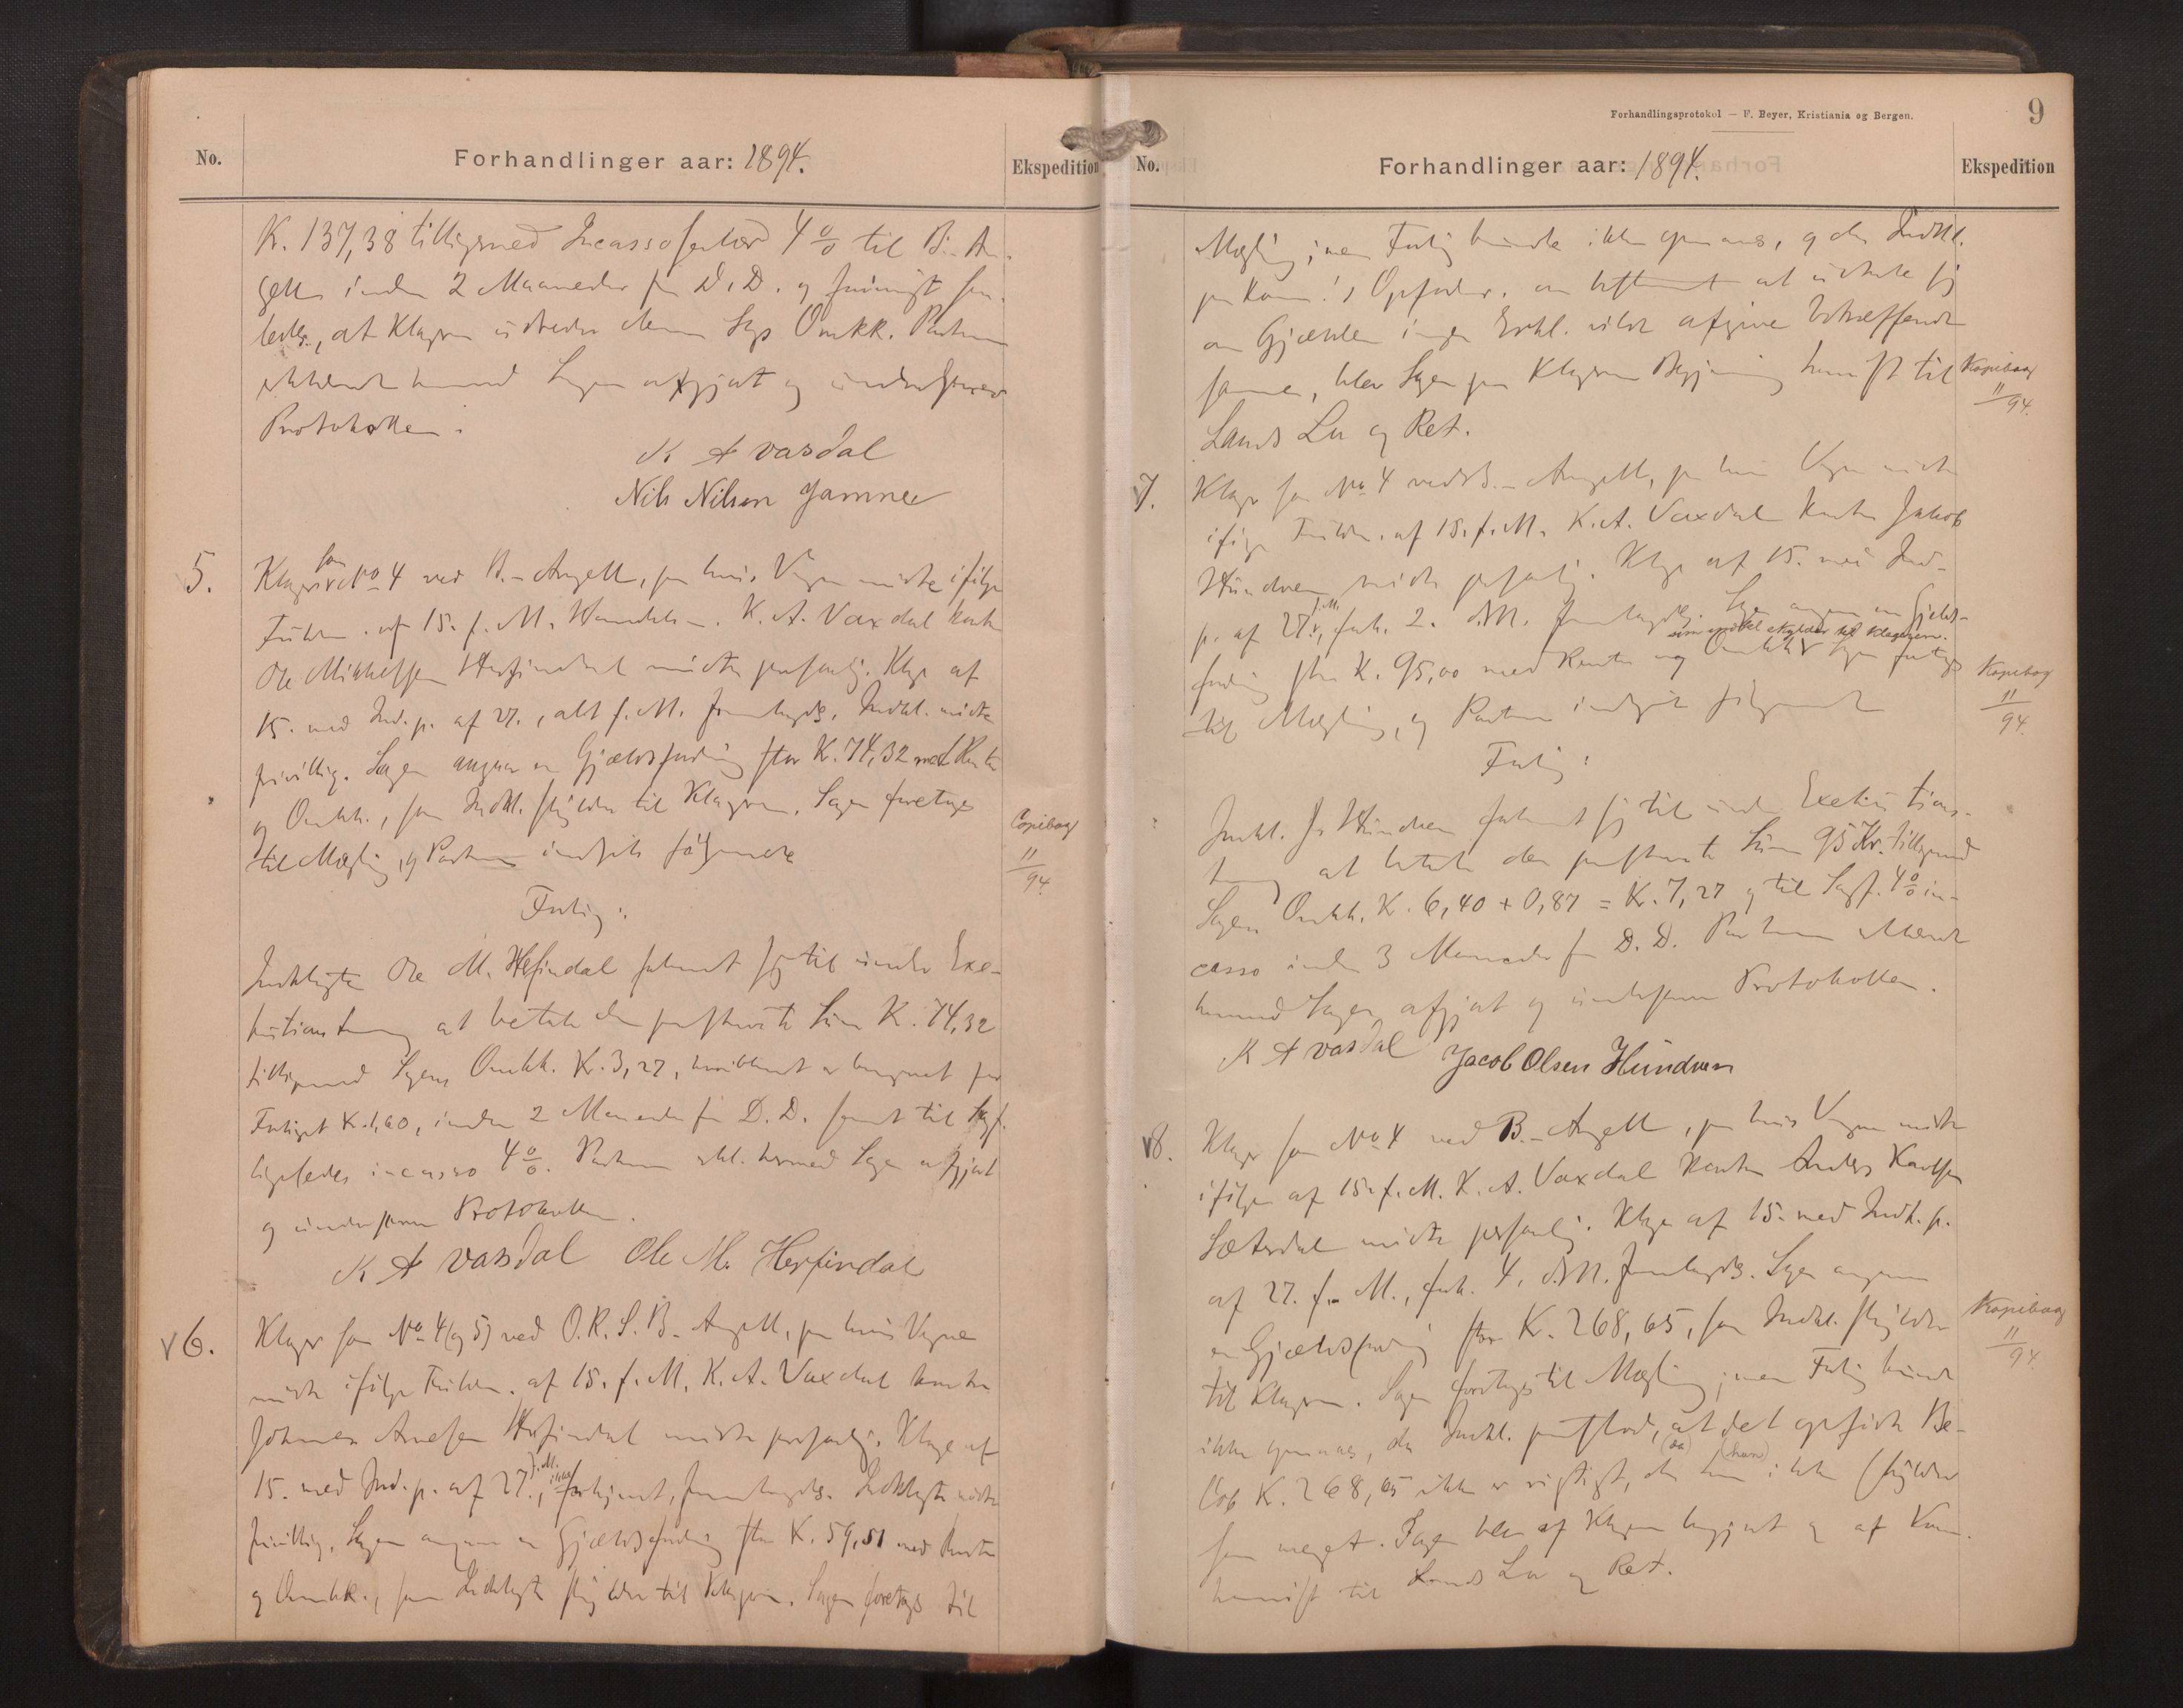 No.
Forhandlinger aar: 1894.
Ekspedition
K. 137,38 tilligemed Incassosalær 4 % til B. An-
gell inden 2 Maaneder fra D. D. og
ledes, at Klageren udreder denne Sags Omkk. Parterne
erkjendte hermed Sagen afgjort og underskrev
Protokollen.
K A vasdal
Nils Nilsen Jamne
5.
Klager som No 4 ved B. Angell, paa hvis Vegne mødte ifølge
Fuldm. af 15. f. M. Handelsm. K. A. Vaxdal contra
Ole Mikkelsen Herfindal mødte personlig. Klage af
15. med Ind. p. af 27., alt f. M. fremlagdes. Indkl. mødte
frivillig. Sagen angaar en Gjældsfordring stor K. 74,32 med Renter
og Omkk., som Indkl. skylder til Klageren. Sagen foretoges
til Mægling, og Parterne indgik følgende
Copibog
11/94
Forlig:
Indklagte Ole M. Hefindal forbandt sig til under Exe-
kutionstvang at betale den paastevnte Sum K. 74,32
tilligemed Sagens Omkk. Kr. 3,27, hvoriblandt er beregnet for
Forliget K. 1,60, inden 2 Maaneder fra D. D. samt til Sagf.
ligeledes incasso 4 %. Parterne erkl. hermed Sagen afgjort
og underskrev Protokollen.
K A vasdal Ole M. Herfindal
v 6.
Klager som No 4 (og 5) ved O. R. S. B. Angell, paa hvis Vegne
mødte ifølge Fuldm. af 15. f. M. K. A. Vaxdal contra
Johannes Arnesen Herfindal mødte personlig. Klage af
15. med Ind. p. af 27. f. M., ikke forkyndt, fremlagdes. Indklagte mødte
frivillig. Sagen angaar en Gjældsfordring stor K. 59,51 med Renter
og Omkk., som Indklagte skylder til Klageren. Sagen foretoges til
Forhandlingsprotokol — F. Beyer, Kristiania og Bergen.
9
No.
Forhandlinger aar: 1894.
Ekspedition
Mægling; men Forlig kunde ikke opnaaes, og da Indkl.
paa Komm.'s Opfordr. om bestemt at udtale sig
om Gjælden ingen Erkl. vilde afgive betræffende
samme, blev Sagen paa Klagerens Begjæring henvist til
Lands Lov og Ret.
Kopibog
11/94.
v 7.
Klager som No 4 ved B. Angell, paa hvis Vegne mødte
ifølge Fuldm. af 15. f. M. K. A. Vaxdal contra Jakob
Hundven mødte personlig. Klage af 15. med Ind-
p. af 27. f. M., fork. 2. d. M. fremlagdes. Sagen angaar en Gjælds-
som indkl. skylder til Klageren.
fordring stor K. 95,00 med Renter og Omkk. Sagen foretoges
til Mægling, og Parterne indgik følgende
Kopibog
11/94.
Forlig:
Indkl. J. Hundven forbandt sig til under Exekutions-
tvang at betale den paastevnte Sum 95 Kr. tilligemed
Sagens Omkk. K. 6,40 + 0,87 = Kr. 7,27 og til Sagf. 4 % in-
casso inden 3 Maaneder fra D. D. Parterne erkjendte
hermed Sagen afgjort og underskrev Protokollen.
K A vasdal Jacob Olsen Hundven
v 8.
Klager som No 4 ved B. Angell, paa hvis Vegne mødte
ifølge af 15. f. M. K. A. Vaxdal contra Anders Karlsen
Sætrdal mødte personlig. Klage af 15. med Indk. p.
af 27. f. M., fork. 4. d. M. fremlagdes. Sagen angaar
en Gjældsfordring stor K. 268,65, som Indkl. skylder
til Klageren. Sagen foretoges til Mægling; men Forlig kunde
ikke opnaaes, da Indkl. paastod, at det opførte Be-
løb K. 268,65 ikke er rigtigt, da (da) han (han) ikke skylder
saa meget. Sagen blev af Klageren begjært og af Komm.
henvist til Lands Lov og Ret.
Kopibog
11/94.